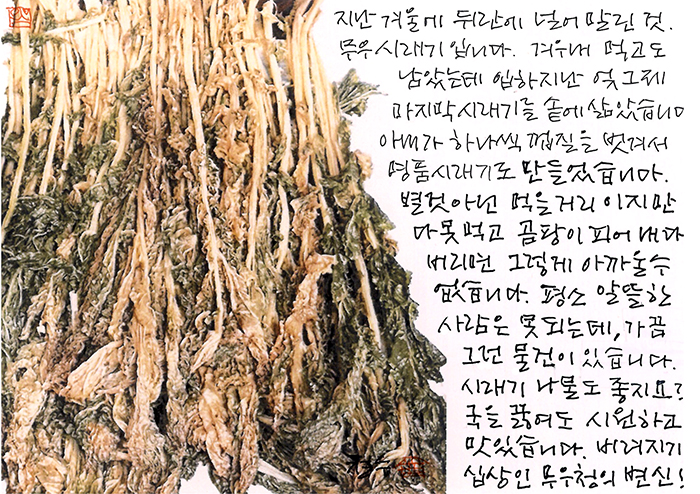 지난 겨울에 뒤란에 널어 말린 것.
무우시래기 입니다. 겨우내 먹고도
남았는데 입하지난 엊그제
마지막 시래기를 솥에 삶았습니다
아내가 하나씩 껍질을 벗겨서
명품시래기로 만들었습니다.
별것아닌 먹을거리 이지만
다 못 먹고 곰팡이 피어 내다
버리면 그렇게 아까울수
없습니다. 평소 알뜰한
사람은 못되는데, 가끔
그런 물건이 있습니다.
시래기 나물도 좋지요?
국을 끓여도 시원하고
맛있습니다. 버려지기
십상인 무우청의 변신!